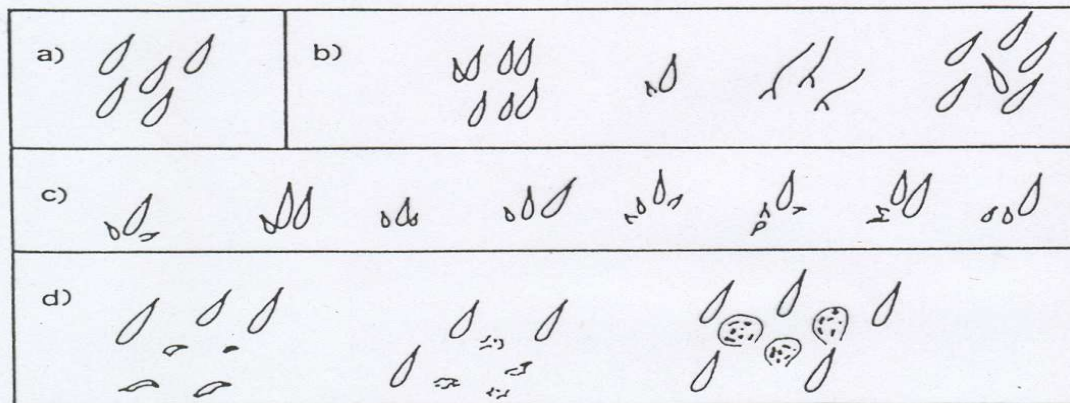 a)
b)
c)
d)